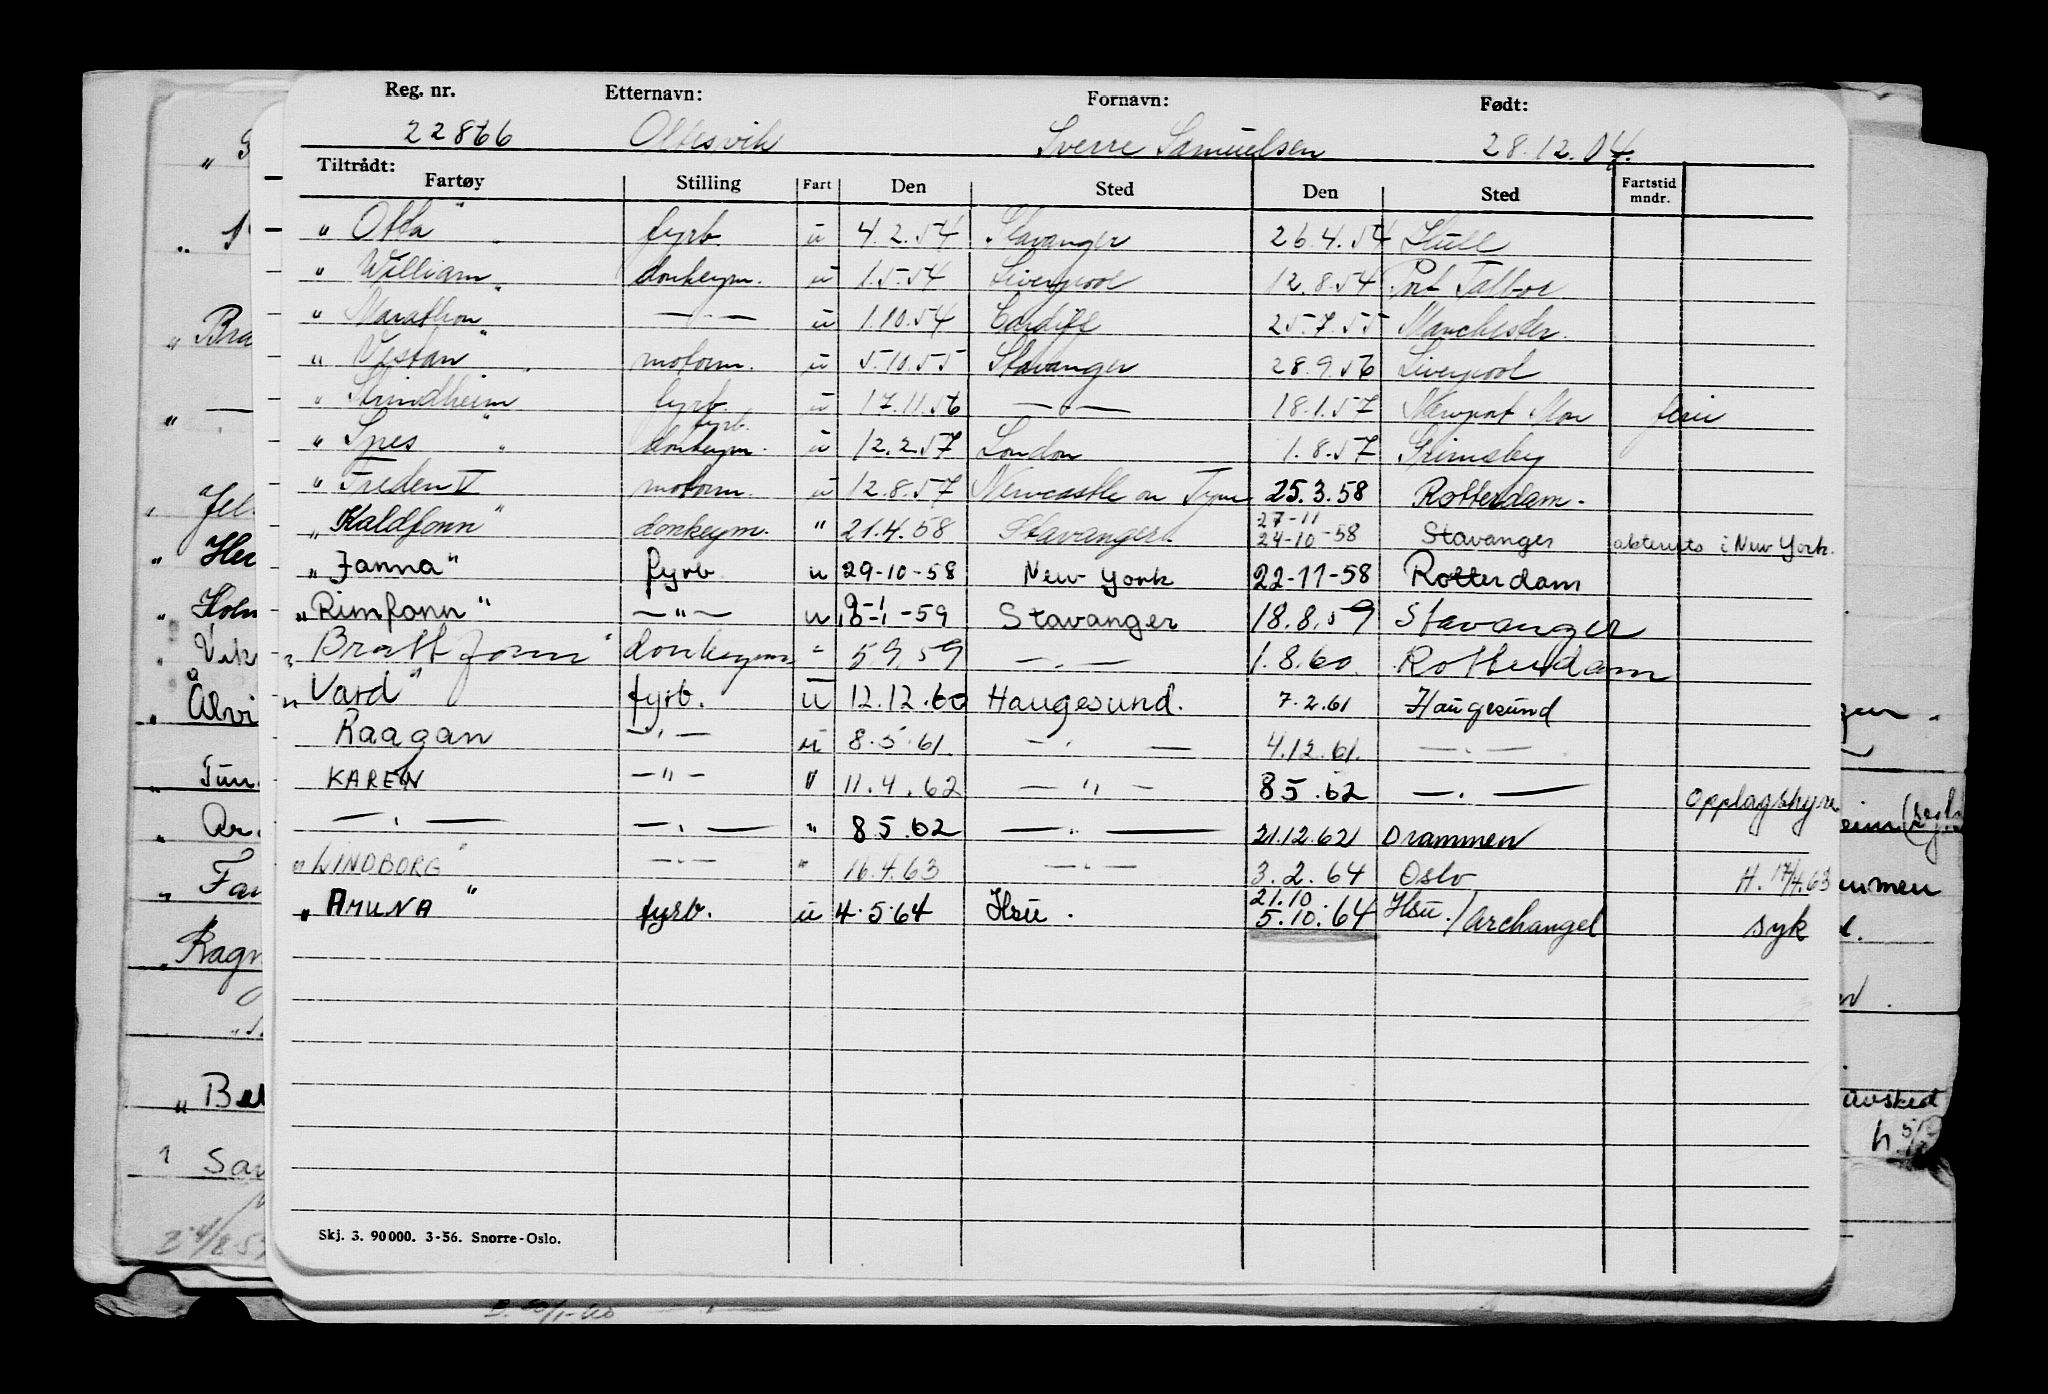 Reg. nr. Etternavn: Fornavn: Født:
22866 Oltesvik Sverre Samuelsen 28.12.04.
Tiltrådt:
Fartøy Stilling Fart Den Sted Den Sted Fartstid mndr.
" Otta " fyrb. u 4.2.54 Stavanger 26.4.54 Hull
" William " donkeym. u 1.5.54 Liverpool 12.8.54 Port Talbot
" Marathon " — " — u 1.10.54 Cardiff 25.7.55 Manchester.
" Vestan " motorm. u 5.10.55 Stavanger 28.9.56 Liverpool
" Strindheim " fyrb. u 17.11.56 — " — 18.1.57 Newport Mon ferie
" Spes " fyrb. donkeym. u 12.2.57 London 1.8.57 Grimsby
" Freden V motorm. u 12.8.57 Newcastle on Tyne 25.3.58 Rotterdam.
" Kaldfonn " donkeym. " 21.4.58 Stavanger. 27-11 24-10-58 Stavanger akteruts i New York.
" Janna " fyrb u 29-10-58 New York 22-11-58 Rotterdam
" Rimfonn " — " — u 9-1-59 Stavanger 18.8.59 Stavanger
" Brattfonn " donkeym " 5.9.59 — " — 1.8.60. Rotterdam
" Vard " fyrb. u 12.12.60 Haugesund. 7.2.61 Haugesund
Raagan — " — u 8.5.61. — " — 4.12.61. — " —
KAREN — " — " 11.4.62 — " — 8.5.62 — " — Opplagshyre
— " — — " — " 8.5.62 — " — 21.12.62 Drammen
" LINDBORG " — " — " 16.4.63 — " — 3.2.64 Oslo H. 17/4.63
" AMUNA " fyrb. u 4.5.64 Hsu. 21.10 5.10.64 Hsu./Archangel syk
Skj. 3. 90 000. 3-56. Snorre-Oslo.